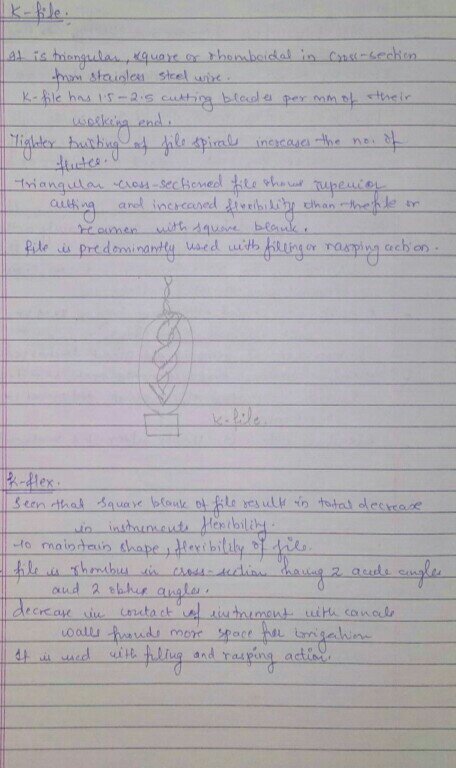 K-file.
It is triangular, square or rhomboidal in cross-section
from stainless steel wire.
K-file has 1.5 - 2.5 cutting blades per mm of their
working end.
Tighter twisting of file spirals increases the no. of
flutes.
Triangular cross-sectioned file shows superior
cutting and increased flexibility than the file or
reamer with square blank.
file is predominantly used with filling or rasping action.
K-file.
K-flex.
Seen that square blank of file results in total decrease
in instruments flexibility.
to maintain shape, flexibility of file.
file is rhombus in cross-section having 2 acute angles
and 2 obtuse angles.
decrease in contact of instrument with canals
walls provide more space for irrigation
It is used with filing and rasping action.